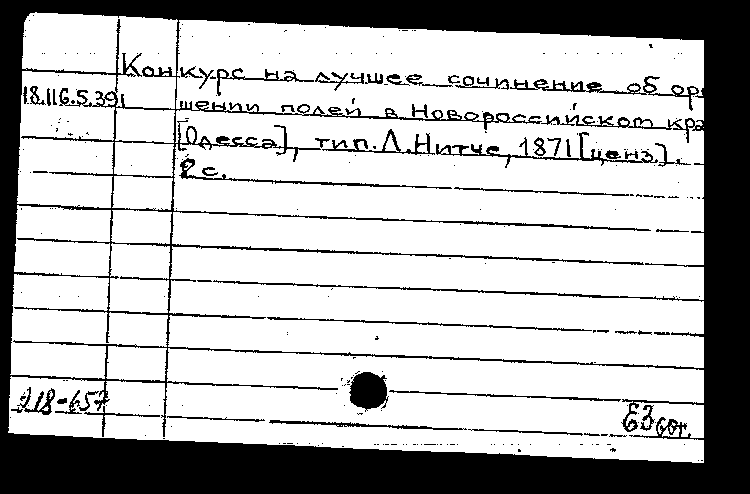 Конкурс на лучшее сочинение об оро
18.116.5.391
шении полей в Новороссийском кра
[Одесса], тип. Л. Нитче, 1871 [ценз.].
2 с.
218-657